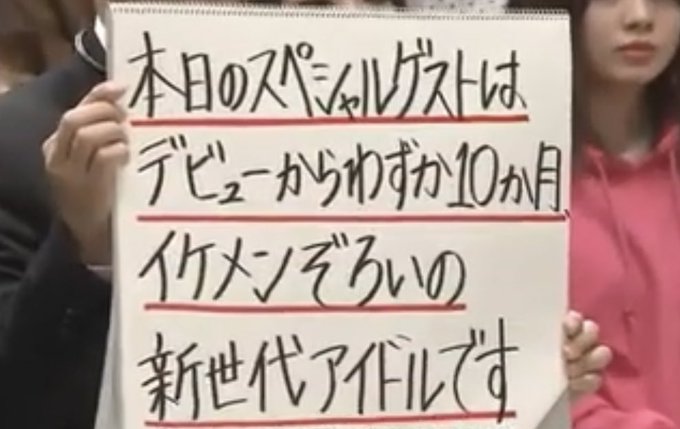 本日のスペシャルゲストは
デビューからわずか10か月、
イケメンぞろいの
新世代アイドルです